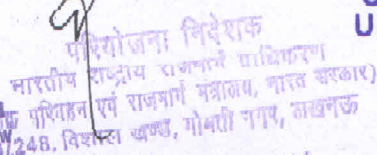 परियोजना निदेशक
भारतीय राष्ट्रीय राजमार्ग प्राधिकरण
परिवहन एवं राजमार्ग मंत्रालय, भारत सरकार)
248, विशाल खण्ड, गोमती नगर, लखनऊ
U